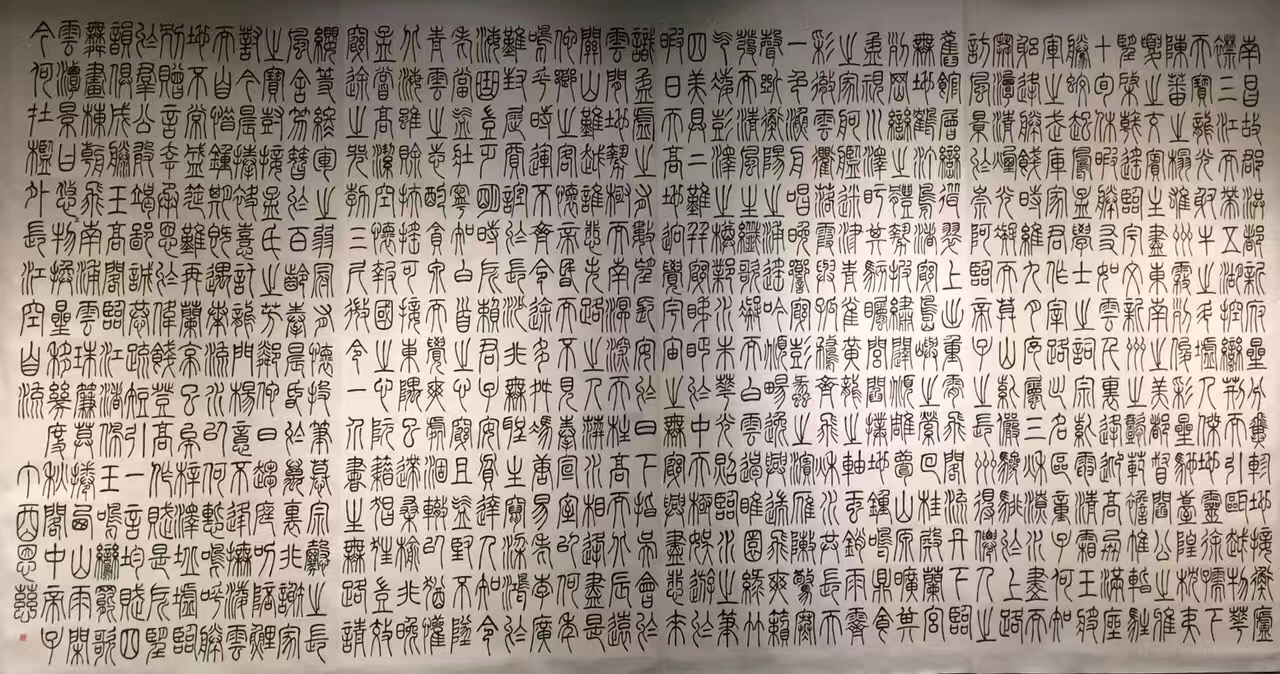 南昌故郡洪都新府星分翼軫地接衡廬
襟三江而帶五湖控蠻荊而引甌越物華
天寶龍光射牛斗之墟人傑地靈徐孺下
陳蕃之榻雄州霧列俊彩星馳臺隍枕夷
夏之交賓主盡東南之美都督閻公之雅
望棨戟遙臨宇文新州之懿範襜帷暫駐
十旬休暇勝友如雲千里逢迎高朋滿座
騰蛟起鳳孟學士之詞宗紫電清霜王將
軍之武庫家君作宰路出名區童子何知
躬逢勝餞時維九月序屬三秋潦水盡而
寒潭清煙光凝而暮山紫儼驂騑於上路
訪風景於崇阿臨帝子之長洲得僊人之
舊館層巒聳翠上出重霄飛閣流丹下臨
無地鶴汀鳧渚窮島嶼之縈迴桂殿蘭宮
列岡巒之體勢披繡闥俯雕甍山原曠其
盈視川澤盱其駭矚閭閻撲地鐘鳴鼎食
之家舸艦迷津青雀黃龍之軸雲銷雨霽
彩徹雲衢落霞與孤鶩齊飛秋水共長天
一色漁舟唱晚響窮彭蠡之濱雁陣驚寒
聲斷衡陽之浦遙吟俯暢逸興遄飛爽籟
發而清風生纖歌凝而白雲遏睢園綠竹
氣凌彭澤之樽鄴水朱華光照臨川之筆
四美具二難并窮睇眄於中天極娛遊於
暇日天高地迥覺宇宙之無窮興盡悲來
識盈虛之有數望長安於日下指吳會於
雲間地勢極而南溟深天柱高而北辰遠
關山難越誰悲失路之人萍水相逢盡是
他鄉之客懷帝閽而不見奉宣室以何年
嗚呼時運不齊命途多舛馮唐易老李廣
難封屈賈誼於長沙非無聖主竄梁鴻於
海曲豈乏明時所賴君子安貧達人知命
老當益壯寧知白首之心窮且益堅不墜
青雲之志酌貪泉而覺爽處涸轍以猶懽
北海雖賒扶搖可接東隅已逝桑榆非晚
孟嘗高潔空懷報國之心阮籍猖狂豈效
窮途之哭勃三尺微命一介書生無路請
纓等終軍之弱冠有懷投筆慕宗愨之長
風舍簪笏於百齡奉晨昏於萬里非謝家
之寶樹接孟氏之芳鄰他日趨庭叨陪鯉
對今晨捧袂喜託龍門楊意不逢撫凌雲
而自惜鍾期既遇奏流水以何慚嗚呼勝
地不常盛筵難再蘭亭已矣梓澤丘墟臨
別贈言幸承恩於偉餞登高作賦是所望
於群公敢竭鄙誠恭疏短引一言均賦四
韻俱成滕王高閣臨江渚佩玉鳴鸞罷歌
舞畫棟朝飛南浦雲珠簾暮捲西山雨閒
雲潭影日悠悠物換星移幾度秋閣中帝子
今何在檻外長江空自流 丁酉恩慈